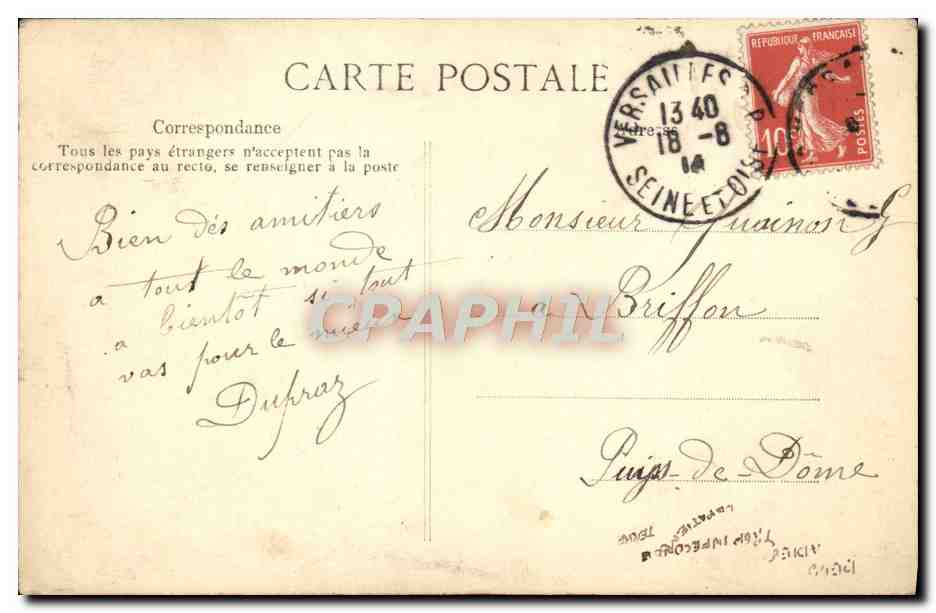 CARTE POSTALE
REPUBLIQUE FRANÇAISE
10
POSTES
VERSAILLES
13 40
18 -8
14
SEINE ET OISE
Correspondance
Adresse
Tous les pays étrangers n'acceptent pas la
correspondance au recto, se renseigner à la poste
Bien dés amitiers
a tout le monde
a bientôt si tout
vas pour le mieux
Dufraz
Monsieur Guainon G
a Briffon
Puys-de-Dôme
CPAPHIL